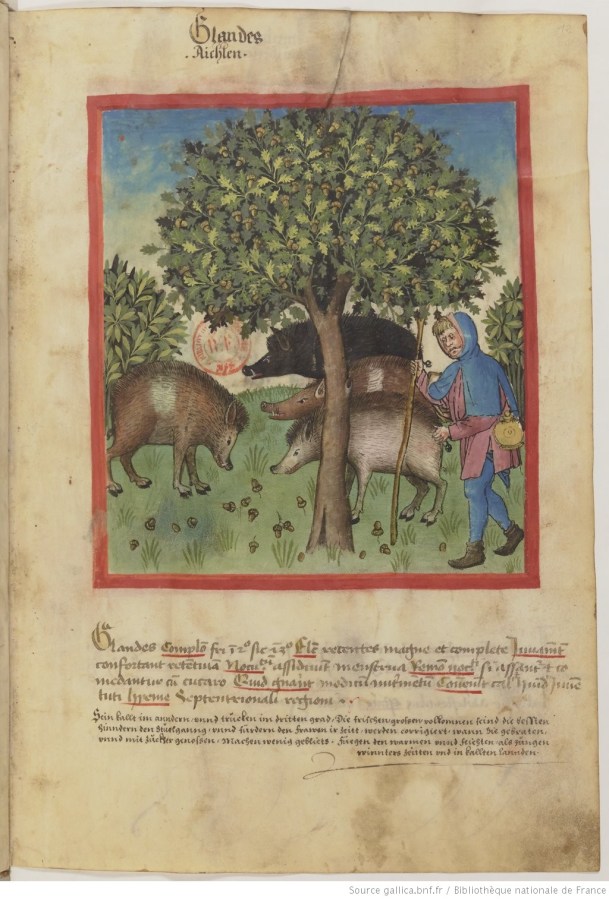 Glandes
Aichlen
Glandes Complō frī ī 2° sic. ī 3° Elc̄ recentes magne et complete Iuuamt̄
confortant retentiuā Nocu. assidiuīt menstrua Remo noc. si assant co
medantur cū cucaro Quid gnāt medicū nutmetū Conueīt cal. huīd iuuen
tuti hyeme Septentrionali regioni
Sein kallt im anndern vnnd trücken im dritten grad, Die frischen grossen volkomnen seind die bessten
hinndern den Stuelganng, vnnd fürdern den frawen ir Zeitt, werden corrigiert wann die gebraten
vnnd mit zuckher genossen. Machen wenig geblüets. Fuegen den warmen vnnd feichten, als jungen
winnters zeitten vnd in kallten lannden.
Source gallica.bnf.fr / Bibliothèque nationale de France